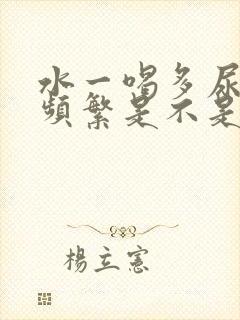 水一喝多尿
頻繁是不是
楊立憲